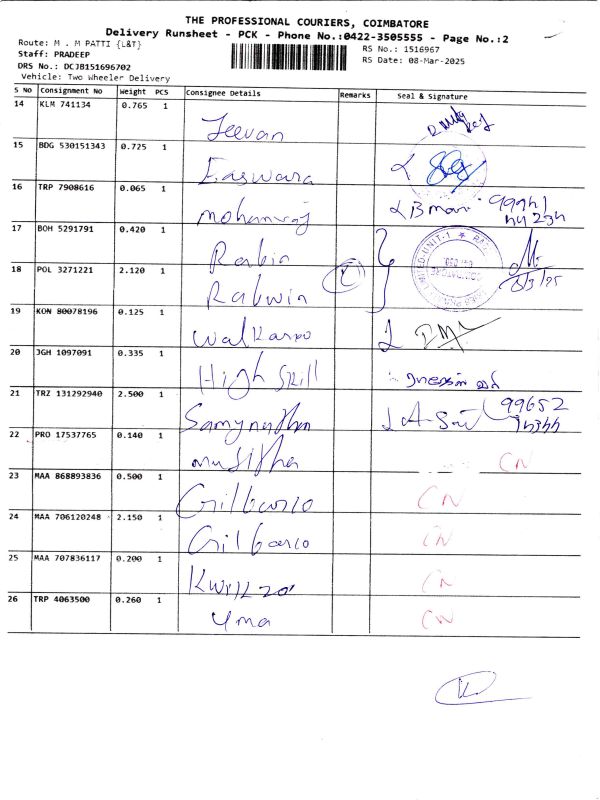 THE PROFESSIONAL COURIERS, COIMBATORE
Delivery Runsheet - PCK - Phone No.:0422-3505555 - Page No.:2
Route: M . M PATTI {L&T}
RS No.: 1516967
Staff: PRADEEP
RS Date: 08-Mar-2025
DRS No.: DCJB151696702
Vehicle: Two Wheeler Delivery
S No Consignment No Weight PCS Consignee Details Remarks Seal & Signature
14 KLM 741134 0.765 1 Jeevan
15 BDG 530151343 0.725 1 Easwara
16 TRP 7908616 0.065 1 mohanraj
17 BOH 5291791 0.420 1 Rabin
18 POL 3271221 2.120 1 Rabwin 8/3/25
19 KON 80078196 0.125 1 walkaroo
20 JGH 1097091 0.335 1 High skill
21 TRZ 131292940 2.500 1 Samynathan 99652
22 PRO 17537765 0.140 1 CN
23 MAA 868893836 0.500 1 Gilbarco CN
24 MAA 706120248 2.150 1 Gilbarco CN
25 MAA 707836117 0.200 1 CN
26 TRP 4063500 0.260 1 Uma CN